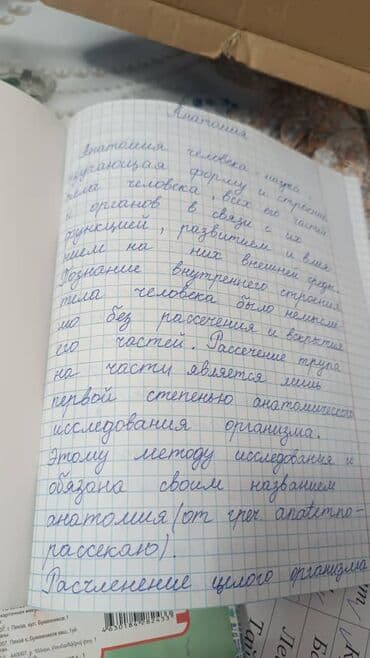 Анатомия
Анатомия человека - наука
изучающая форму и строение
тела человека, всех его частей
и органов в связи с их
функцией, развитием и влия
нием на них внешней
Познание внутреннего строения
тела человека было немысли
мо без рассечения и вскрытия
его частей. Рассечение трупа
на части является лишь
первой степенью анатомического
исследования организма.
Этому методу исследования и
обязана своим названием
анатомия (от греч. anatemno-
рассекаю).
Расчленение целого организма
4630184282455